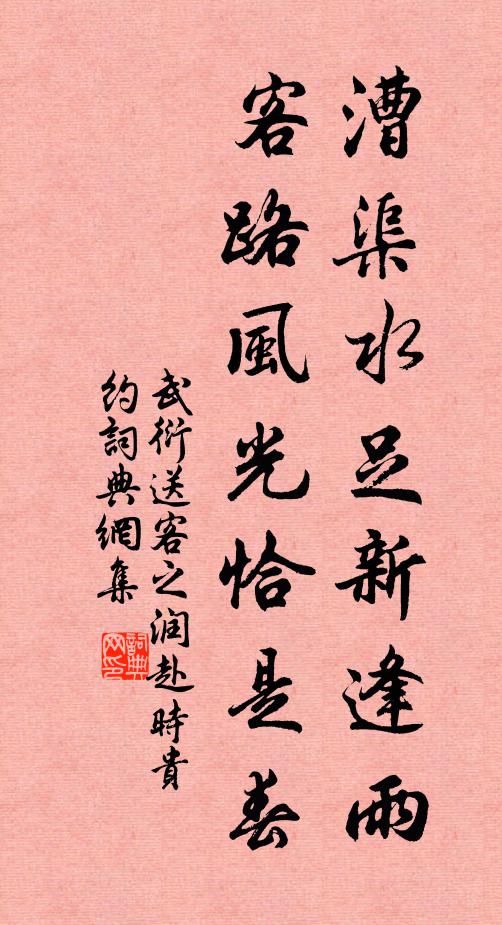 漕渠水足新逢雨
客路風光恰是春
武衍送客之润赴時貴
约詞典網集
詞典網印